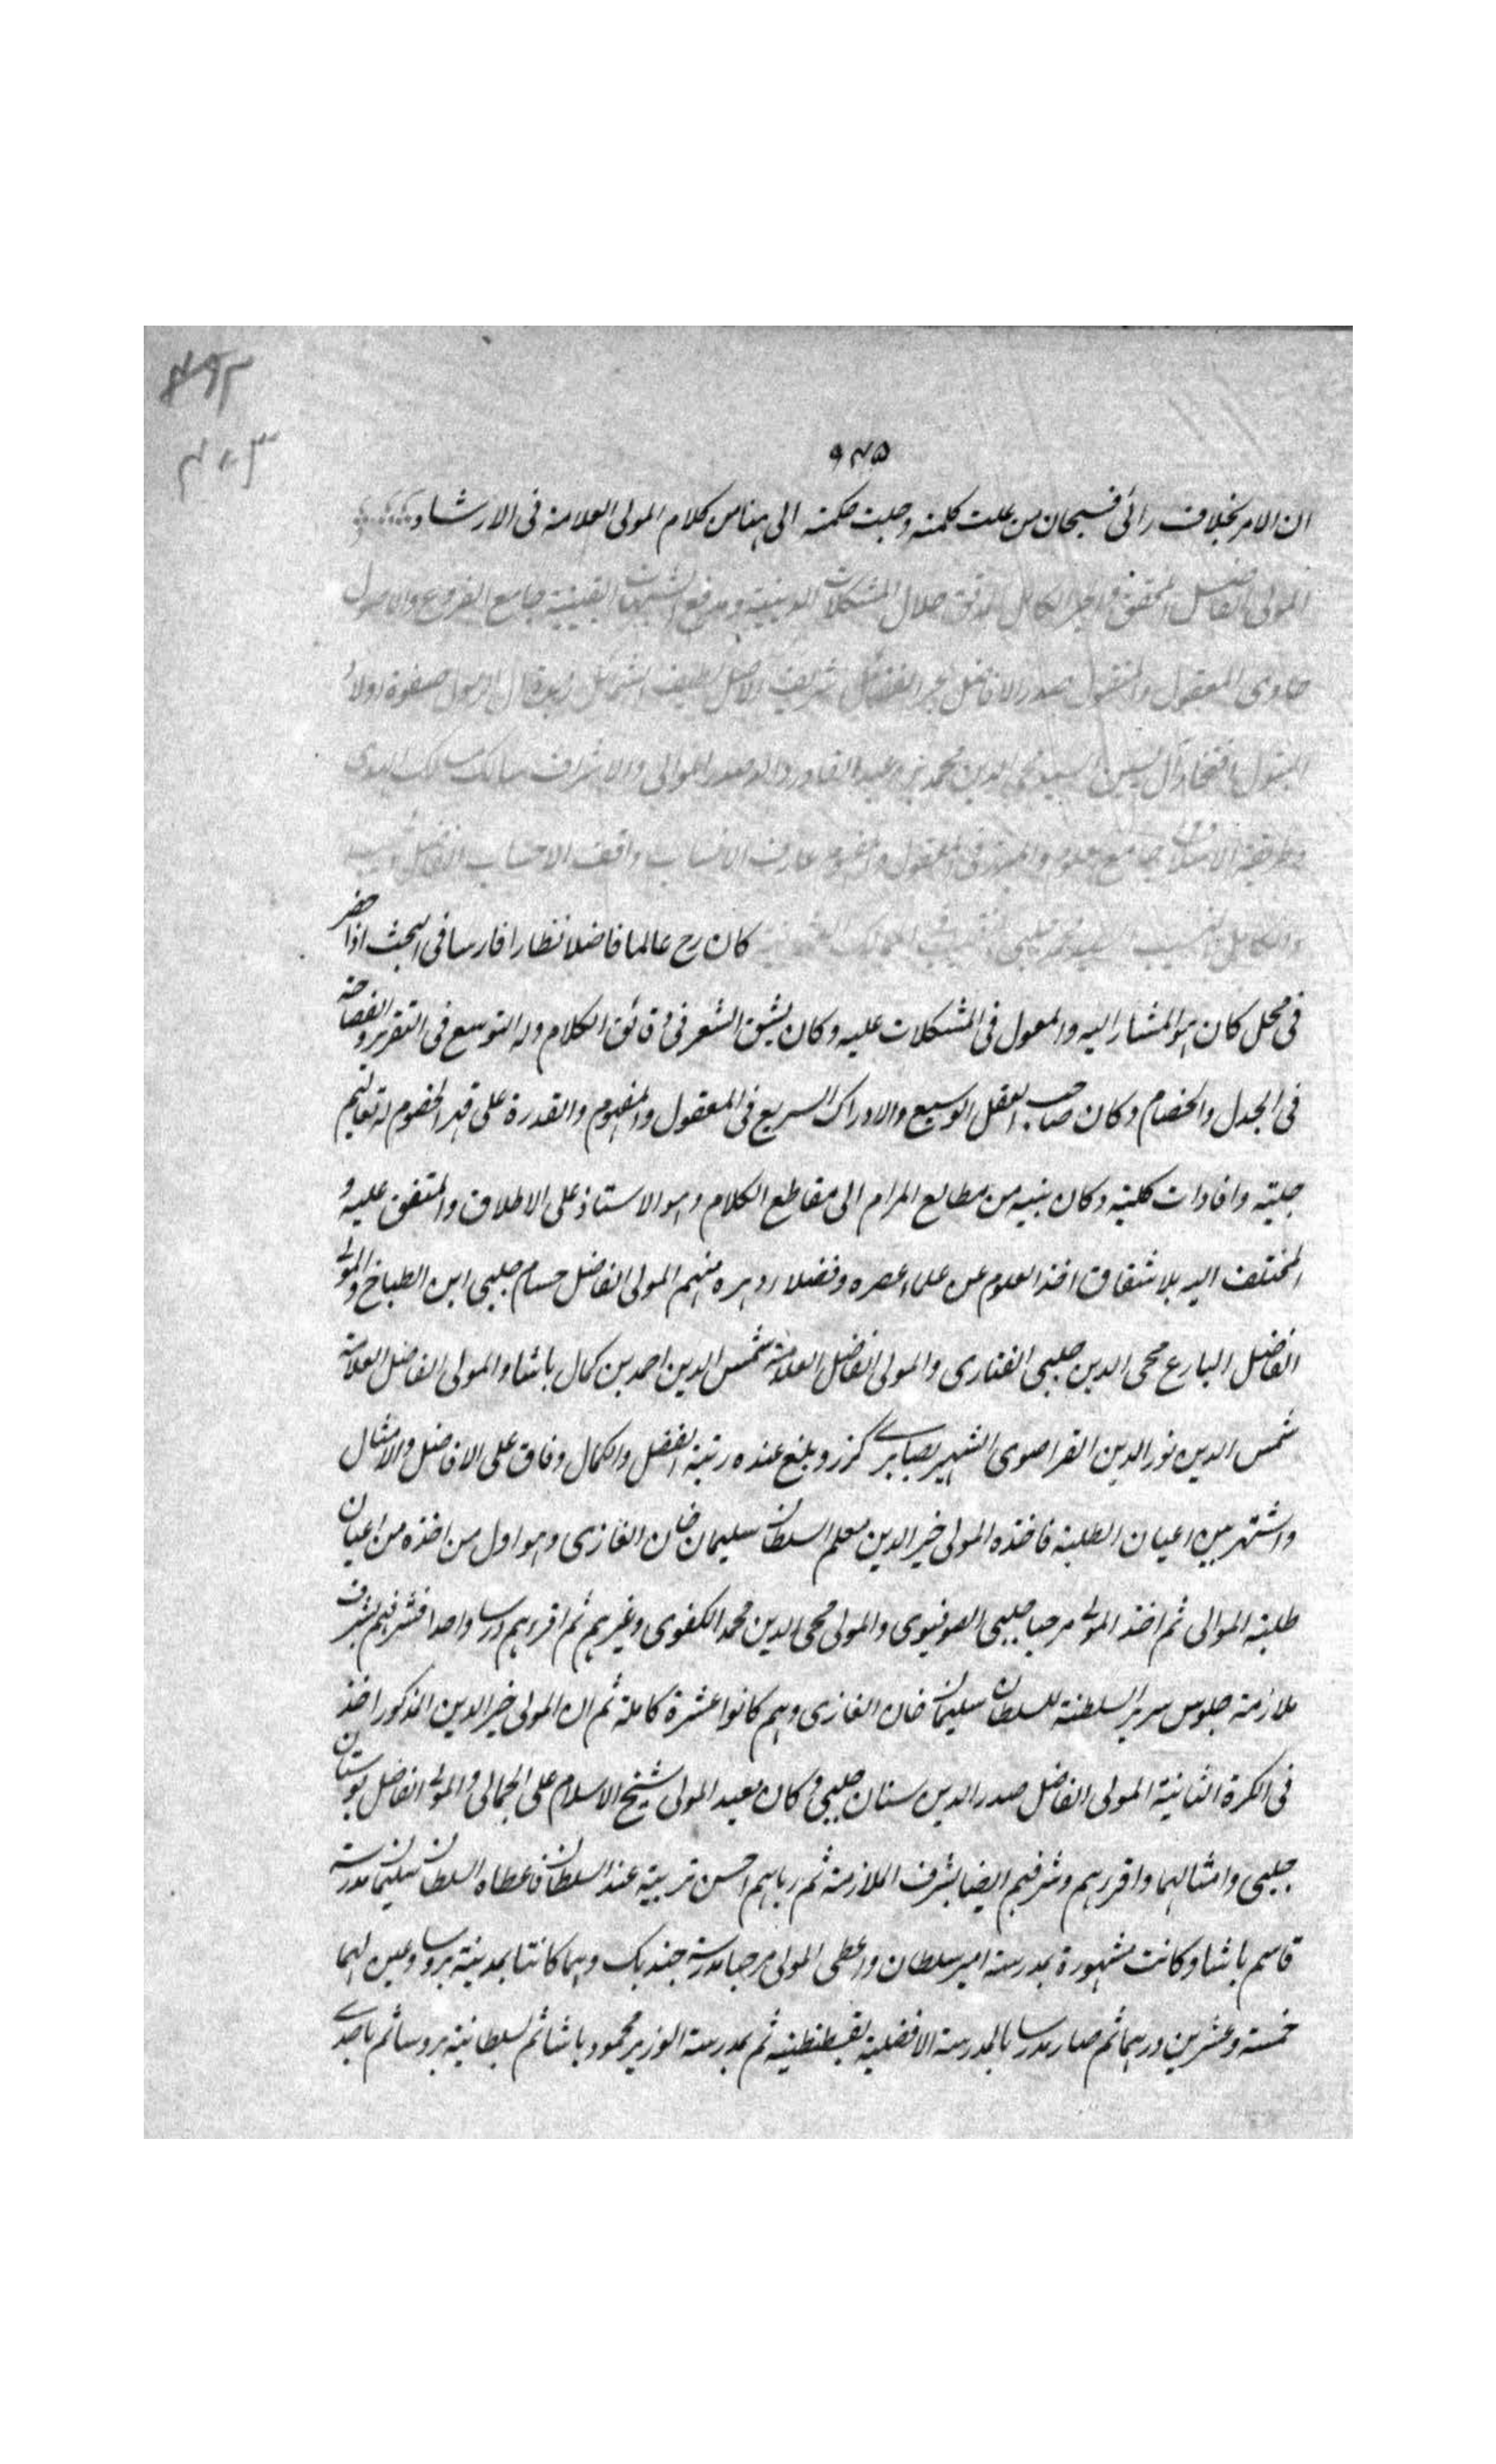 ٩٤٥
ان الامر بخلاف رائى فسبحان من علت كلمته وجلت حكمته الى هنا من كلام المولى العلامة فى الارشاد
المولى الفاضل المحقق والحبر الكامل المدقق حلال المشكلات الدينية ومدفع الشبهات اليقينية جامع الفروع والاصول
حاوى المعقول والمنقول صدر الافاضل بحر الفضائل شريف الاصل لطيف الشمائل زبدة آل الرسول صفوة اولاد
البتول افتخار آل يسين السيد محى الدين محمد بن عبد القادر والد صدر الموالى والاشراف سالك مسالك الهدى
جامع العلوم والمبرز فى المنقول والمفهوم عارف الانساب واقف الاحساب الفاضل
والكامل السيد محمد چلبى كان رح عالما فاضلا نظارا فارسا فى البحث اذا حضر
فى محل كان هو المشار اليه والمعول فى المشكلات عليه وكان يشق الشعر فى دقائق الكلام وله التوسع فى التقرير والفصاحة
فى الجدل والخصام وكان صاحب العقل الوسيع والادراك السريع فى المعقول والمفهوم والقدرة على قهر الخصوم له تعاليم
جلية وافادات كلية وكان ينبيه من مطالع المرام الى مقاطع الكلام وهو الاستاذ على الاطلاق والمتفق عليه و
المختلف اليه بلا شقاق اخذ العلوم عن علماء عصره وفضلاء دهره منهم المولى الفاضل حسام چلبى ابن الطباخ والمولى
الفاضل البارع محى الدين چلبى الفنارى والمولى الفاضل العلامة شمس الدين احمد بن كمال باشا والمولى الفاضل العلامة
شمس الدين نور الدين القراصوى الشهير بصارى كرز وبلغ عنده رتبة الفضل والكمال وفاق على الافاضل والامثال
واشتهر بين اعيان الطلبة فاخذه المولى خير الدين معلم السلطان سليمان خان الغازى وهو اول من اخذه من اعيان
طلبة الموالى ثم اخذ المولى مرحبا چلبى الصوفيوى والمولى محى الدين محمد الكفوى وغيرهم ثم اقرءهم درسا واحدا فشرفهم بشرف
ملازمة جلوس سرير السلطنة للسلطان سليمان خان الغازى وهم كانوا عشرة كاملة ثم ان المولى خير الدين المذكور اخذ
فى الكرة الثانية المولى الفاضل صدر الدين سنان چلبى وكان معيد المولى شيخ الاسلام على الجمالى والمولى الفاضل بوستان
چلبى وامثالهما واقرءهم وشرفهم ايضا بشرف الملازمة ثم رباهم احسن تربية عند السلطان فاعطاه السلطان سليمان مدرسة
قاسم باشا وكانت مشهورة بمدرسة امير سلطان واعطى المولى مرحبا مدرسة جندبك وهما كانتا بمدينة بروسا وعين لهما
خمسة وعشرين درهما ثم صار مدرسا بالمدرسة الافضلية بقسطنطينية ثم بمدرسة الوزير محمود باشا ثم بسلطانية بروسا ثم باحدى